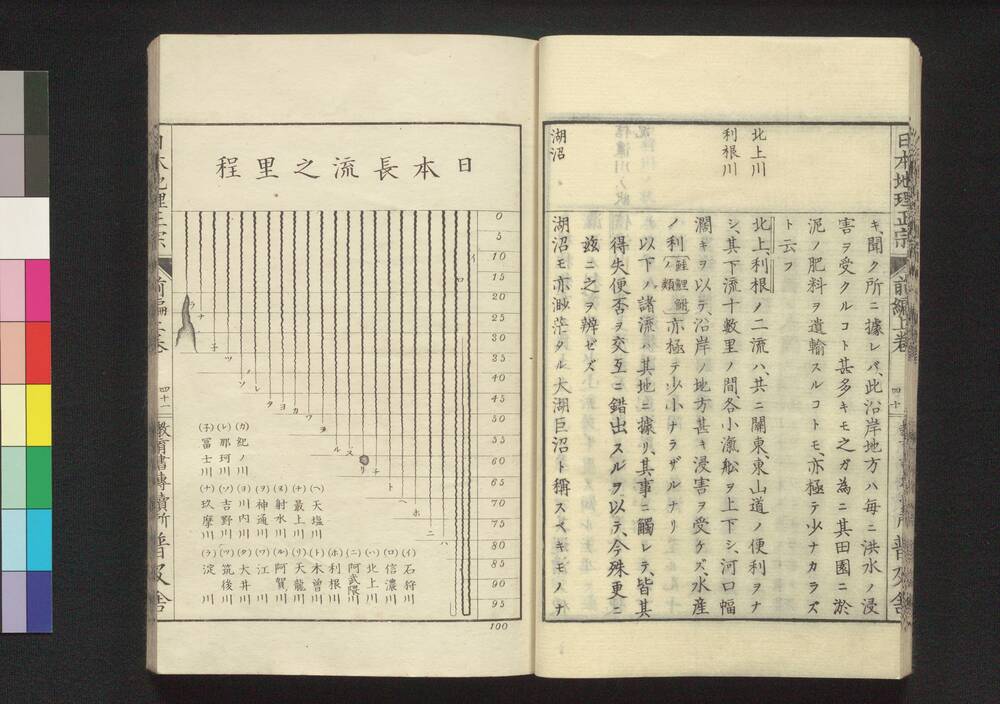 日本地理正宗
前編上巻
四十
普及舎
北上川
利根川
湖沼
キ、聞ク所ニ據レバ、此沿岸地方ハ毎ニ洪水ノ浸
害ヲ受クルコト甚多キモ之ガ為ニ其田園ニ於
泥ノ肥料ヲ遺輸スルコトモ、亦極テ少ナカラズ
ト云フ
北上、利根ノ二流ハ、共ニ關東、東山道ノ便利ヲナ
シ、其下流十數里ノ間、各小滊舩ヲ上下シ、河口幅
濶キヲ以テ、沿岸ノ地方甚キ浸害ヲ受ケズ、水産
ノ利鮭鯉鮒ノ類亦極テ少小ナラザルナリ
以下ノ諸流ハ、其地ニ據リ、其事ニ觸レテ、皆其
得失便否ヲ交互ニ錯出スルヲ以テ、今殊更ニ
茲ニ之ヲ辨ゼズ
湖沼モ亦渺茫タル大湖巨沼ト稱スベキモノナ
日本長流之里程
0
5
10
15
20
25
30
35
40
45
50
55
60
65
70
75
80
85
90
95
100
イ
ロ
ハ
ニ
ホ
ヘ
ト
チ
リ
ヌ
ル
ヲ
ワ
カ
ヨ
タ
レ
ソ
ツ
子
ナ
ラ
(イ)石狩川
(ロ)信濃川
(ハ)北上川
(ニ)阿武隈川
(ホ)利根川
(ヘ)天塩川
(ト)木曾川
(チ)最上川
(リ)天龍川
(ヌ)射水川
(ル)阿賀川
(ヲ)神通川
(ワ)江川
(カ)紀ノ川
(ヨ)川内川
(タ)大井川
(レ)那珂川
(ソ)吉野川
(ツ)筑後川
(子)冨士川
(ナ)玖摩川
(ラ)淀川
日本地理正宗
前編上巻
四十一
教育書專賣所普及舎